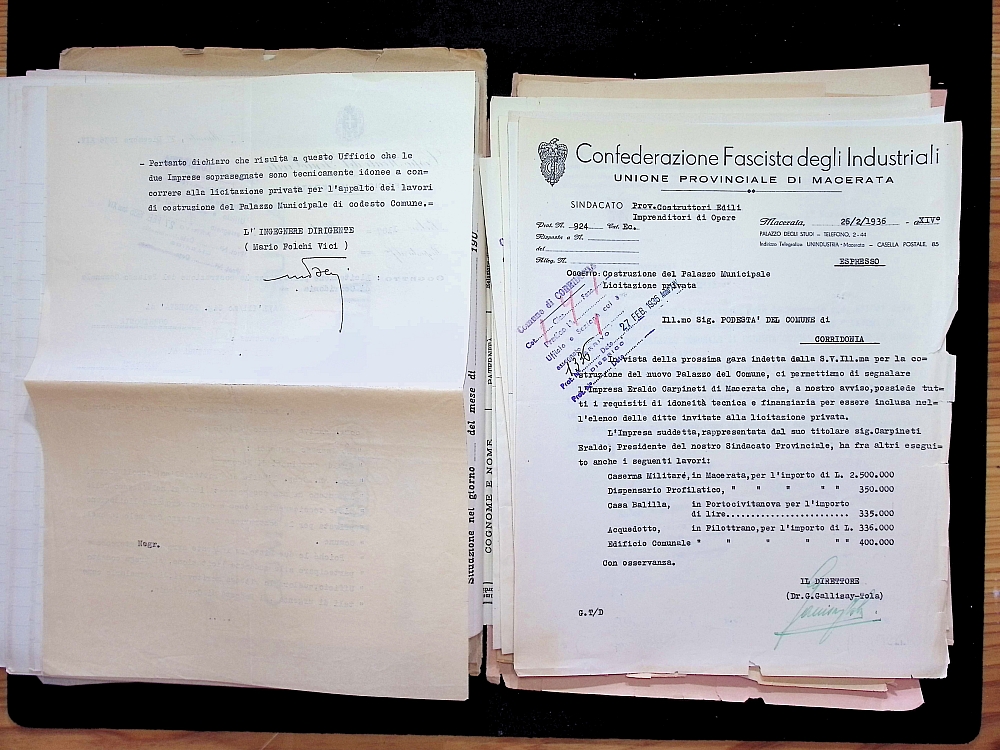 - Pertanto dichiaro che risulta a questo Ufficio che le
due Imprese soprasegnate sono tecnicamente idonee a con-
correre alla licitazione privata per l'appalto dei lavori
di costruzione del Palazzo Municipale di codesto Comune.=
L' INGEGNERE DIRIGENTE
( Mario Folchi Vici )
Situazione nel giorno del mese di 190
COGNOME E NOME
Confederazione Fascista degli Industriali
UNIONE PROVINCIALE DI MACERATA
SINDACATO Prov.Costruttori Edili
Imprenditori di Opere
Prot. N. 924 Cat. Ec.
Risposta a N.
del
Alleg. N.
Macerata, 26/2/1936 - a. XIV°
PALAZZO DEGLI STUDI - TELEFONO, 2-44
Indirizzo Telegrafico UNINDUSTRIA - Macerata - CASELLA POSTALE, 85
ESPRESSO
Oggetto: Costruzione del Palazzo Municipale
Licitazione privata
Comune di
27 FEB. 1936
Ill.mo Sig. PODESTA' DEL COMUNE di
CORRIDONIA
In vista della prossima gara indetta dalla S.V.Ill.ma per la co-
struzione del nuovo Palazzo del Comune, ci permettiamo di segnalare
l'Impresa Eraldo Carpineti di Macerata che, a nostro avviso,possiede tut-
ti i requisiti di idoneità tecnica e finanziaria per essere inclusa nel-
l'elenco delle ditte invitate alla licitazione privata.
L'Impresa suddetta,rappresentata dal suo titolare sig.Carpineti
Eraldo; Presidente del nostro Sindacato Provinciale, ha fra altri esegui-
to anche i seguenti lavori:
Caserma Militare,in Macerata,per l'importo di L. 2.500.000
Dispensario Profilatico, " " " " " 350.000
Casa Balilla, in Portocivitanova per l'importo
di lire......................... 335.000
Acquedotto, in Filottrano,per l'importo di L. 336.000
Edificio Comunale " " " " " " 400.000
Con osservanza.
IL DIRETTORE
(Dr.G.Gallisay-Tola)
G.T/D